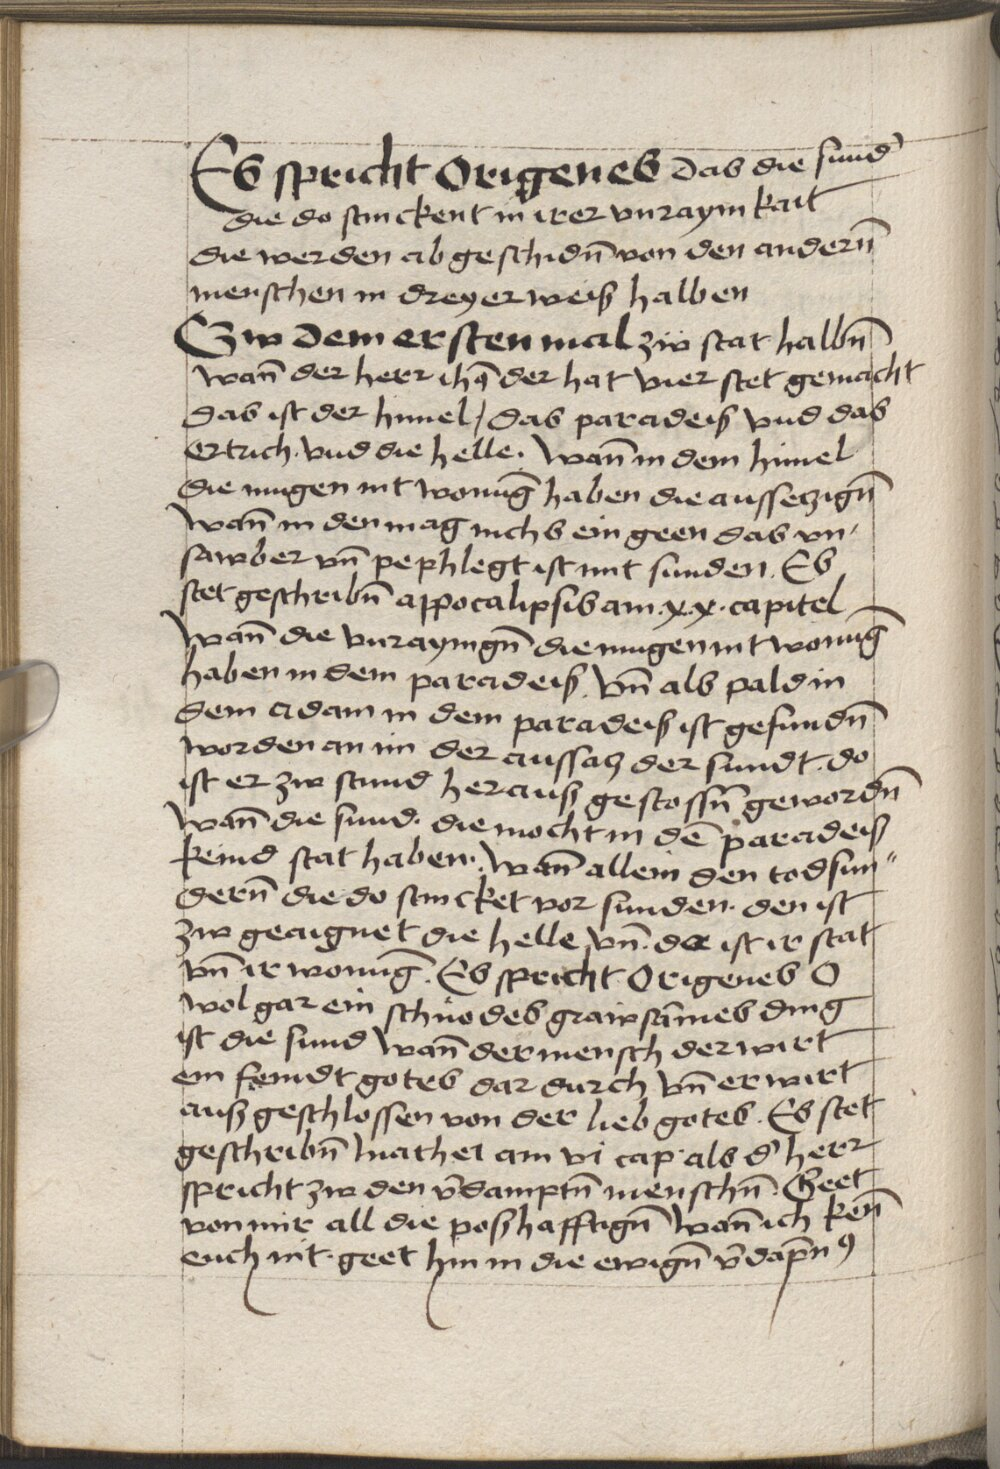 Es spricht Origenes das die sund̛
die do stinckent in irer vnraynikait
die werden ab geschidn̄ von den andern̄
menschen in dreyer weiß halben
Czw dem ersten mal zẅ stat halbn̄
wan̄ der herr ih̄s der hat vier stet gemacht
das ist der himel / das paradeiß vnd das
ertrich · vnd die helle · wan̄ in dem himel
die mugen nit wonūg haben die aussetzign̄
wan̄ in den mag nichs ein geen das vn/
sawber vn̄ pephlegt ist mit sunden · Es
stet geschribn̄ appocalipsis am · x · x · capitel
wan̄ die vnraynign̄ die mugen nit wonūg
haben in dem paradeiß vn̄ als pald in
dem adam in dem paradeiß ist gefundn̄
worden an im der aussatz der sundt · do
ist er zw stund herauß gestossn̄ gewordn̄
wan̄ die sund · die mocht in dē paradeiß
keind stat haben · wan̄ allein den todsun〃
dern̄ die do stincket vor sunden · den ist
zw geaignet die helle vn̄ · do ist ir stat
vn̄ ir wonūg · Es spricht Origenes O
wol gar ein schnodes grawsāmes ding
ist die sund wan̄ der mensch der wirt
ein feindt gotes dar durch vn̄ er wirt
auß geschlossen von der lieb gotes · Es stet
geschribn̄ mathei am vi cap · als d̛ herr
spricht zw den v̄damptn̄ menschn̄ · Geet
von mir all die poßhafftign̄ wan̄ ich ken̄
euch nit · geet hin in die ewign̄ v̄dap̄nꝰ